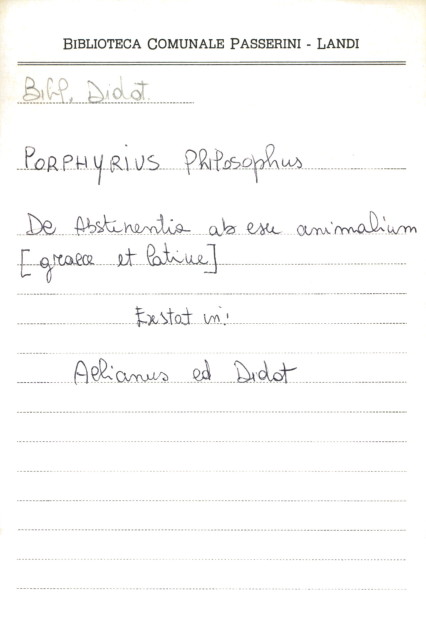 BIBLIOTECA COMUNALE PASSERINI - LANDI
Bibl. Didot.
PORPHYRIUS Philosophus
De Abstinentia ab esu animalium
[graece et latine]
Exstat in:
Aelianus ed Didot